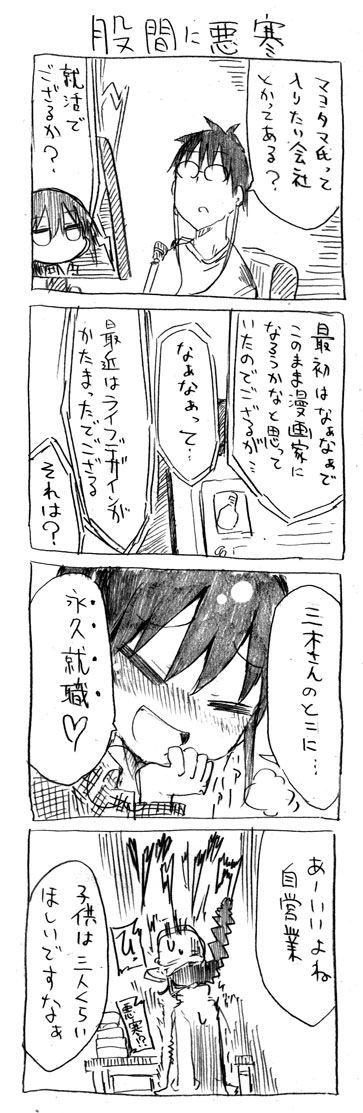 股間に悪寒
マコタマ氏って
入りたい会社
とかってある？
就活で
ござるか？
最初はなぁなぁで
このまま漫画家に
なるつかなと思って
いたのでござるが…
なぁなぁって…
最近はライフデザインが
かたまったでござる
それは？
三木さんのとこに…
永久就職♡
あーいいよね
自営業
び
悪寒!?
子供は三人くらい
ほしいですなぁ